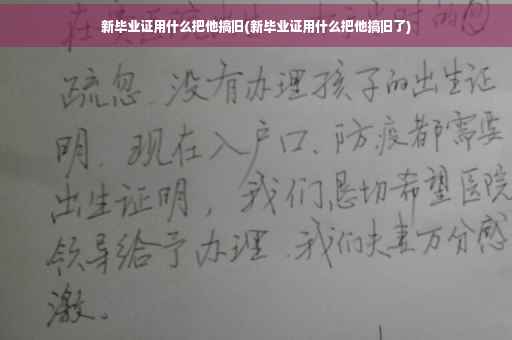 新毕业证用什么把他搞旧(新毕业证用什么把他搞旧了)
疏忽、没有办理孩子的出生证
明、现在入户口、防疫都需要
出生证明，我们恳切希望医院
领导给予办理、我们夫妻万分感
激。